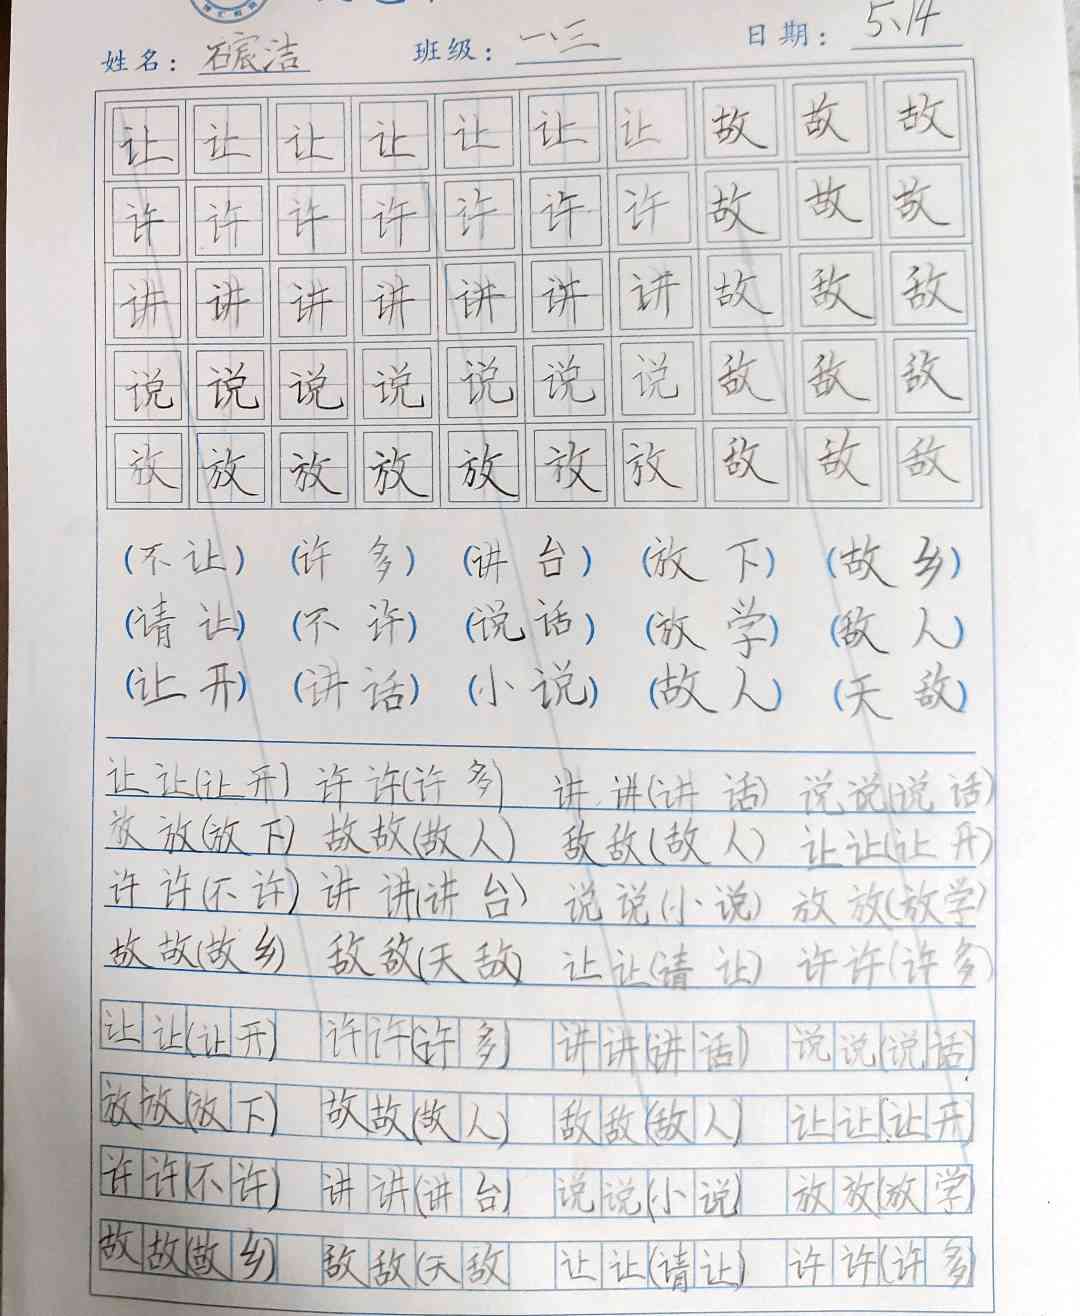 姓名: 石宸洁 班级: 一、三 日期: 5、14
让 让 让 让 让 让 让 故 故 故
许 许 许 许 许 许 许 故 故 故
讲 讲 讲 讲 讲 讲 讲 故 敌 敌
说 说 说 说 说 说 说 敌 敌 敌
放 放 放 放 放 放 放 敌 敌 敌
(不让) (许多) (讲台) (放下) (故乡)
(请让) (不许) (说话) (放学) (敌人)
(让开) (讲话) (小说) (故人) (天敌)
让让(让开) 许许(许多) 讲讲(讲话) 说说(说话)
放放(放下) 故故(故人) 敌敌(敌人) 让让(让开)
许许(不许) 讲讲(讲台) 说说(小说) 放放(放学)
故故(故乡) 敌敌(天敌) 让让(请让) 许许(许多)
让让(让开) 许许(许多) 讲讲(讲话) 说说(说话)
放放(放下) 故故(故人) 敌敌(敌人) 让让(让开)
许许(不许) 讲讲(讲台) 说说(小说) 放放(放学)
故故(故乡) 敌敌(天敌) 让让(请让) 许许(许多)